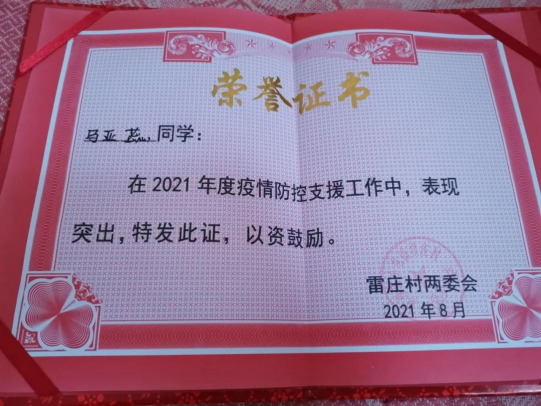 荣誉证书
马亚蕊同学：
在2021年度疫情防控支援工作中，表现
突出，特发此证，以资鼓励。
雷庄村两委会
2021年8月